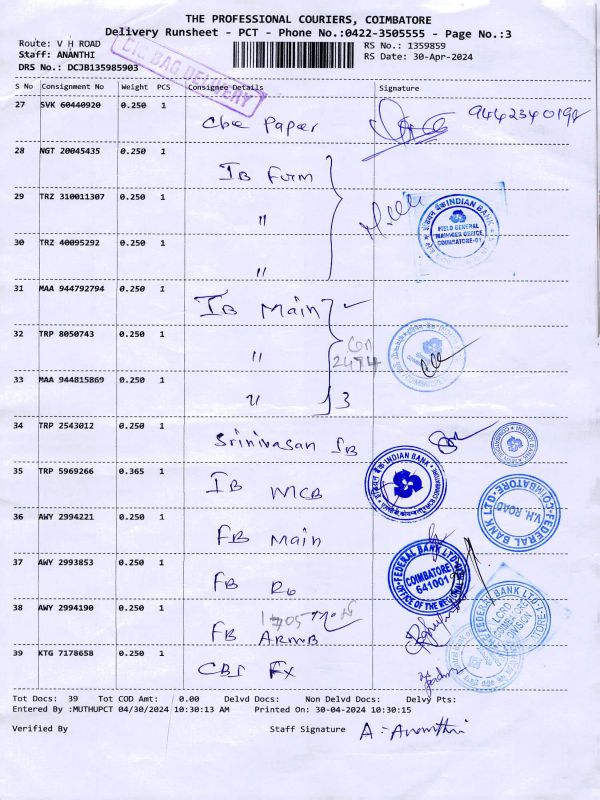 THE PROFESSIONAL COURIERS, COIMBATORE
Delivery Runsheet - PCT - Phone No.:0422-3505555 - Page No.:3
Route: V H ROAD
RS No.: 1359859
Staff: ANANTHI
RS Date: 30-Apr-2024
DRS No.: DCJB135985903
BIG BAG DELIVERY
S No Consignment No Weight PCS Consignee Details Signature
27 SVK 60440920 0.250 1
Cbe Paper
28 NGT 20045435 0.250 1
IB Firm
29 TRZ 310011307 0.250 1
"
INDIAN BANK
FIELD GENERAL
MANAGER OFFICE
COIMBATORE-01
30 TRZ 40095292 0.250 1
"
31 MAA 944792794 0.250 1
IB Main
32 TRP 8050743 0.250 1
"
33 MAA 944815869 0.250 1
" 3
34 TRP 2543012 0.250 1
Srinivasan IB
35 TRP 5969266 0.365 1
IB MCB
INDIAN BANK
FEDERAL BANK LTD
V.H. ROAD
COIMBATORE
36 AWY 2994221 0.250 1
FB Main
37 AWY 2993853 0.250 1
FB Ro
FEDERAL BANK LTD
COIMBATORE
641001
38 AWY 2994190 0.250 1
FB ARMB
FEDERAL BANK LTD
39 KTG 7178658 0.250 1
CBI FX
Tot Docs: 39 Tot COD Amt: 0.00 Delvd Docs: Non Delvd Docs: Delvy Pts:
Entered By :MUTHUPCT 04/30/2024 10:30:13 AM Printed On: 30-04-2024 10:30:15
Verified By Staff Signature A. Ananthi